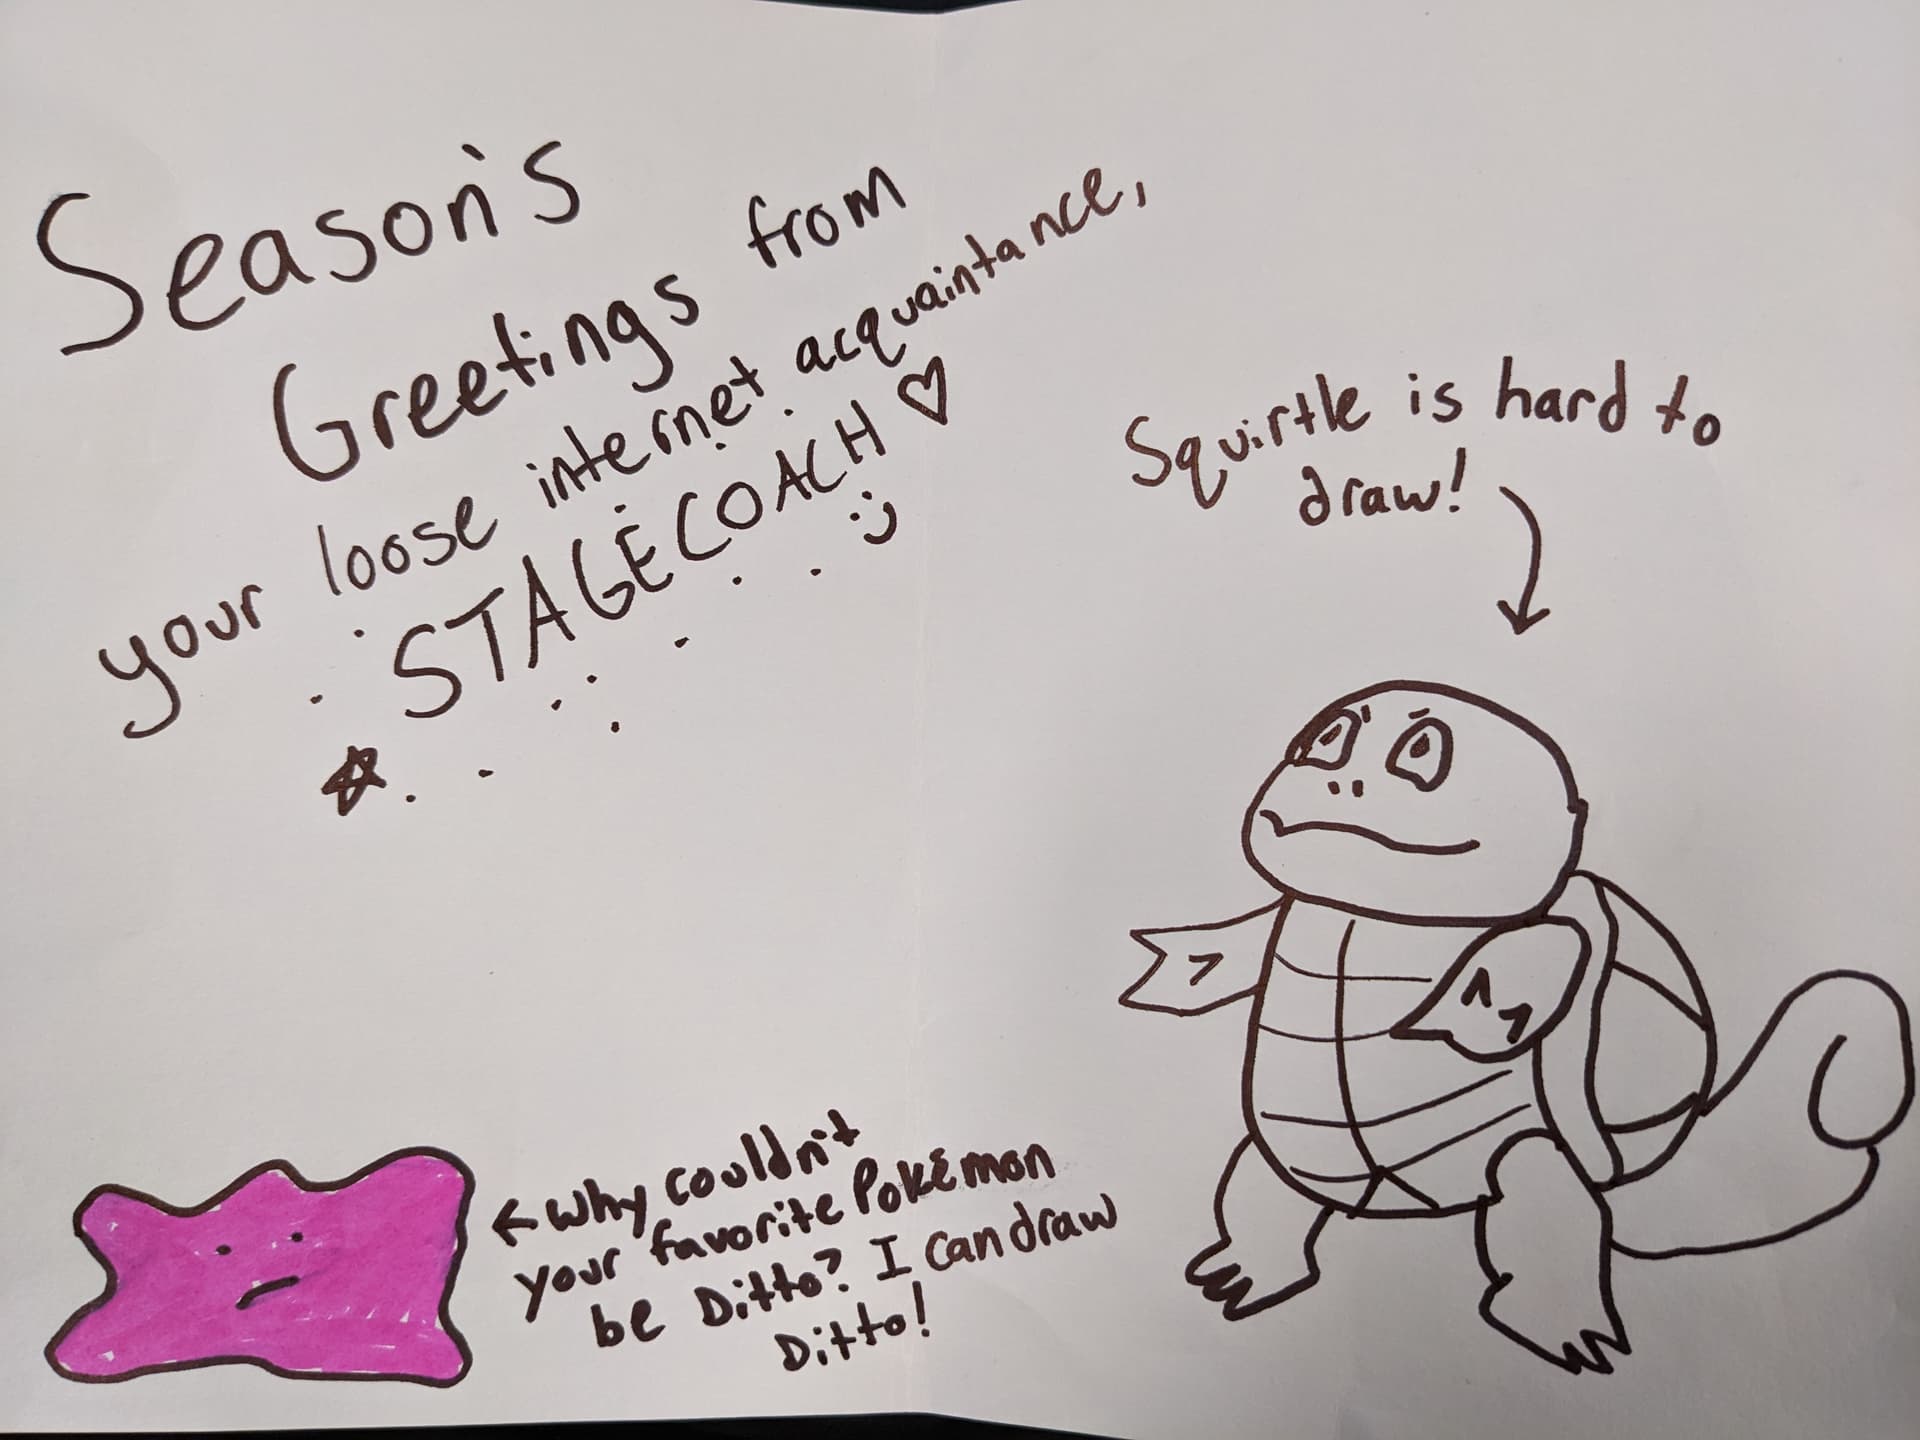 Season's
Greetings from
your loose internet acquaintance,
STAGECOACH ♡
:)
Squirtle is hard to
draw!
← Why couldn't
your favorite Pokémon
be Ditto? I can draw
Ditto!